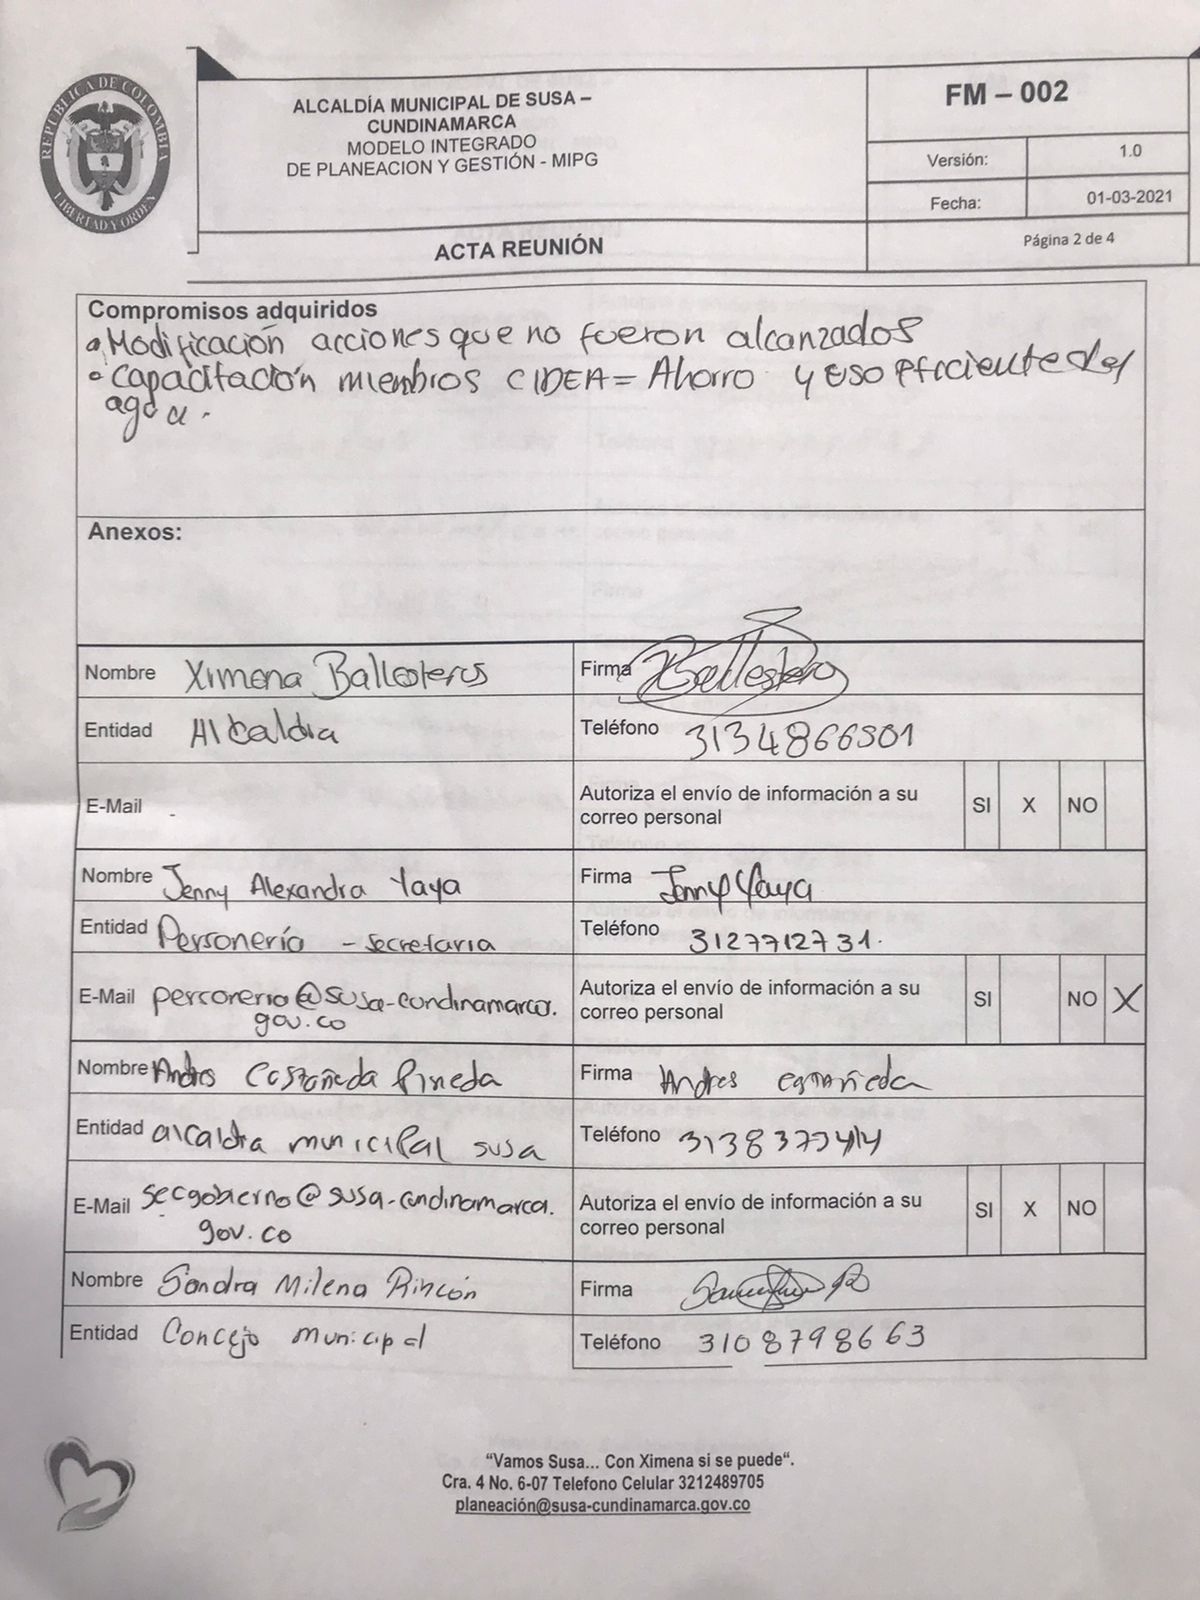 REPUBLICA DE COLOMBIA
LIBERTAD Y ORDEN
ALCALDÍA MUNICIPAL DE SUSA –
CUNDINAMARCA
MODELO INTEGRADO
DE PLANEACION Y GESTIÓN - MIPG
FM – 002
Versión: 1.0
Fecha: 01-03-2021
ACTA REUNIÓN
Página 2 de 4
Compromisos adquiridos
• Modificación acciones que no fueron alcanzados
• Capacitación miembros CIDEA = Ahorro y uso eficiente del
agua.
Anexos:
Nombre Ximena Ballesteros Firma XBallesteros
Entidad Alcaldia Teléfono 3134866501
E-Mail - Autoriza el envío de información a su
correo personal SI X NO
Nombre Jenny Alexandra Yaya Firma Jenny Yaya
Entidad Personería - secretaria Teléfono 3127712731.
E-Mail personeria@susa-cundinamarca.
gov.co
Autoriza el envío de información a su
correo personal SI NO X
Nombre Andres Castañeda Pineda Firma Andres Castañeda
Entidad alcaldia municipal susa Teléfono
E-Mail secgobierno@susa-cundinamarca.
gov.co
Autoriza el envío de información a su
correo personal SI X NO
Nombre Sandra Milena Rincón Firma
Entidad Concejo municipal Teléfono 3108798663
“Vamos Susa... Con Ximena si se puede“.
Cra. 4 No. 6-07 Telefono Celular 3212489705
planeación@susa-cundinamarca.gov.co